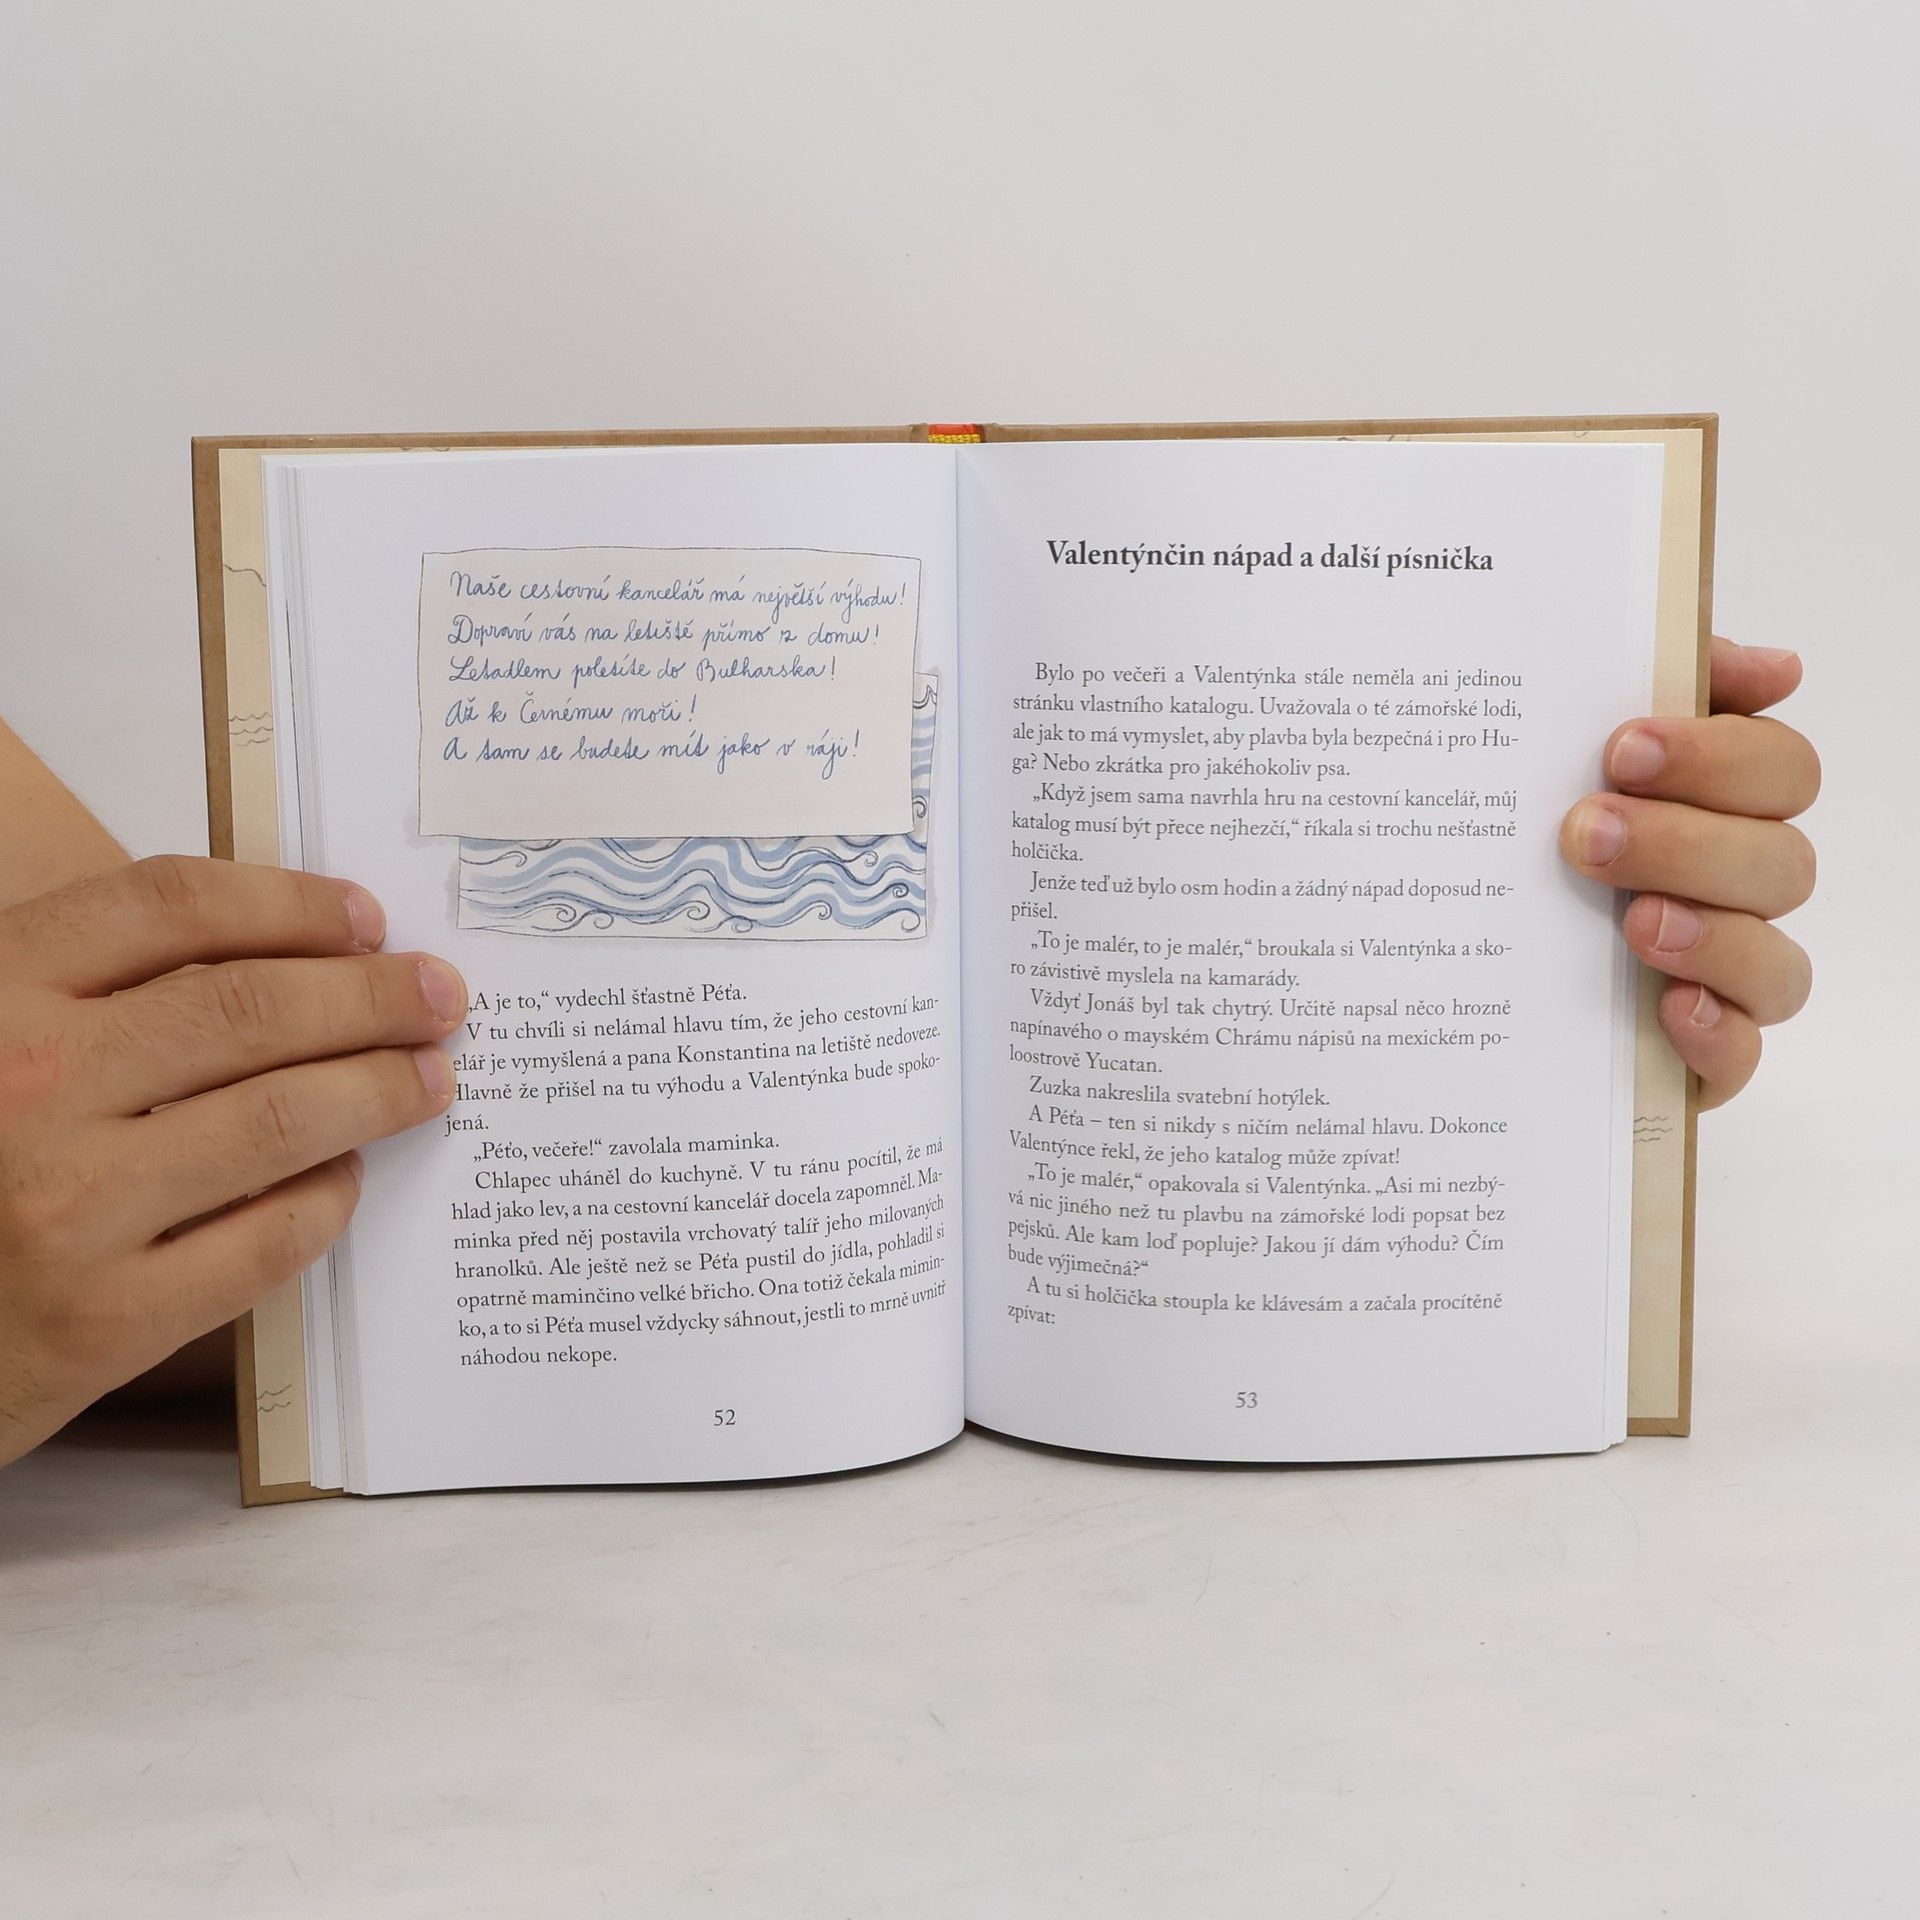 Naše cestovní kancelář má největší výhodu!
Dopraví vás na letiště přímo z domu!
Letadlem poletíte do Bulharska!
Až k Černému moři!
A tam se budete mít jako v ráji!
„A je to,“ vydechl šťastně Péťa.
V tu chvíli si nelámal hlavu tím, že jeho cestovní kan-
elář je vymyšlená a pana Konstantina na letiště nedoveze.
Hlavně že přišel na tu výhodu a Valentýnka bude spoko-
jená.
„Péťo, večeře!“ zavolala maminka.
Chlapec uháněl do kuchyně. V tu ránu pocítil, že má
hlad jako lev, a na cestovní kancelář docela zapomněl. Ma-
minka před něj postavila vrchovatý talíř jeho milovaných
hranolků. Ale ještě než se Péťa pustil do jídla, pohladil si
opatrně maminčino velké břicho. Ona totiž čekala mimin-
ko, a to si Péťa musel vždycky sáhnout, jestli to mrně uvnitř
náhodou nekope.
52
Valentýnčin nápad a další písnička
Bylo po večeři a Valentýnka stále neměla ani jedinou
stránku vlastního katalogu. Uvažovala o té zámořské lodi,
ale jak to má vymyslet, aby plavba byla bezpečná i pro Hu-
ga? Nebo zkrátka pro jakéhokoliv psa.
„Když jsem sama navrhla hru na cestovní kancelář, můj
katalog musí být přece nejhezčí,“ říkala si trochu nešťastně
holčička.
Jenže teď už bylo osm hodin a žádný nápad doposud ne-
přišel.
„To je malér, to je malér,“ broukala si Valentýnka a sko-
ro závistivě myslela na kamarády.
Vždyť Jonáš byl tak chytrý. Určitě napsal něco hrozně
napínavého o mayském Chrámu nápisů na mexickém po-
loostrově Yucatan.
Zuzka nakreslila svatební hotýlek.
A Péťa – ten si nikdy s ničím nelámal hlavu. Dokonce
Valentýnce řekl, že jeho katalog může zpívat!
„To je malér,“ opakovala si Valentýnka. „Asi mi nezbý-
vá nic jiného než tu plavbu na zámořské lodi popsat bez
pejsků. Ale kam loď popluje? Jakou jí dám výhodu? Čím
bude výjimečná?“
A tu si holčička stoupla ke klávesám a začala procítěně
zpívat:
53